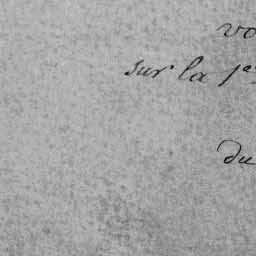 vo
sur la 1e
du